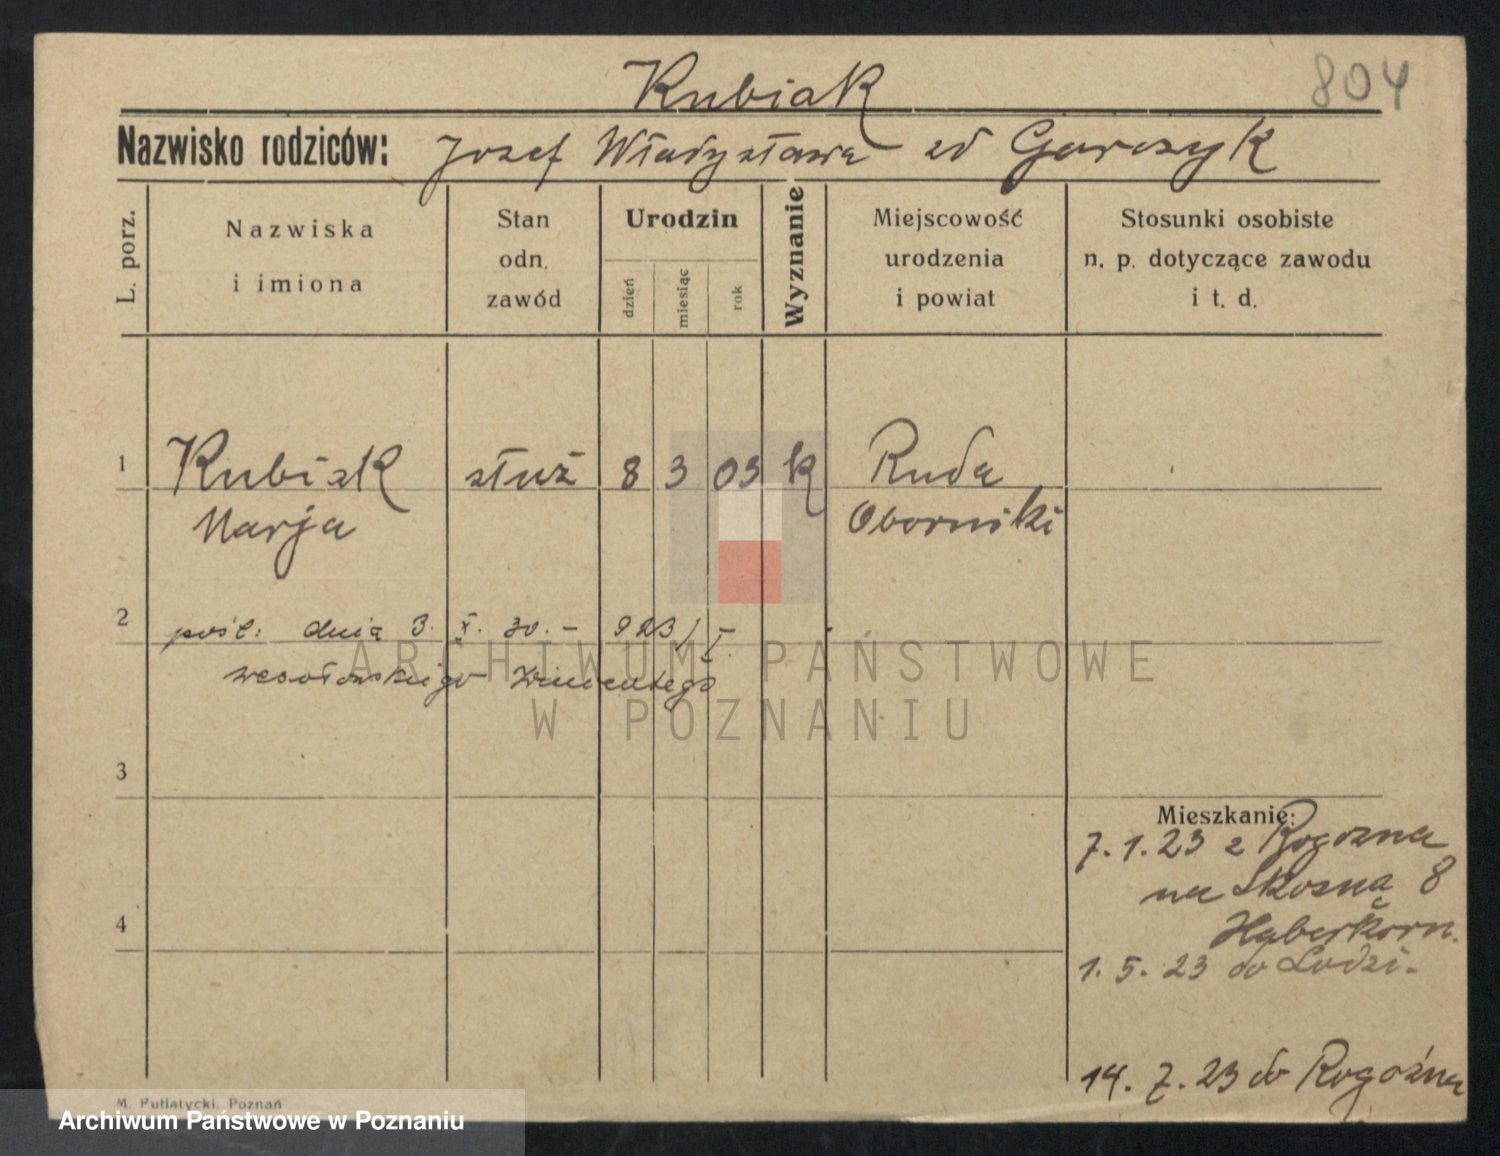 Kubiak
804
Nazwisko rodziców: Józef Władysława zd Garczyk
L. porz.
Nazwiska i imiona
Stan odn. zawód
Urodzin
dzień
miesiąc
rok
Wyznanie
Miejscowość urodzenia i powiat
Stosunki osobiste n. p. dotyczące zawodu i t. d.
1 Kubiak służ 8 3 03 k Ruda
Marja Oborniki
2 pośl: dnia 3. X. 30. – 923/I
wesołowskiego Wincentego
3
Mieszkanie:
7.1.23 z Rogozna
na Skosna 8
Haberkorn.
4
1.5.23 do Lodzi.
14.7.23 do Rogoźna
M. Putiatycki, Poznań
ARCHIWUM PAŃSTWOWE
W POZNANIU
Archiwum Państwowe w Poznaniu